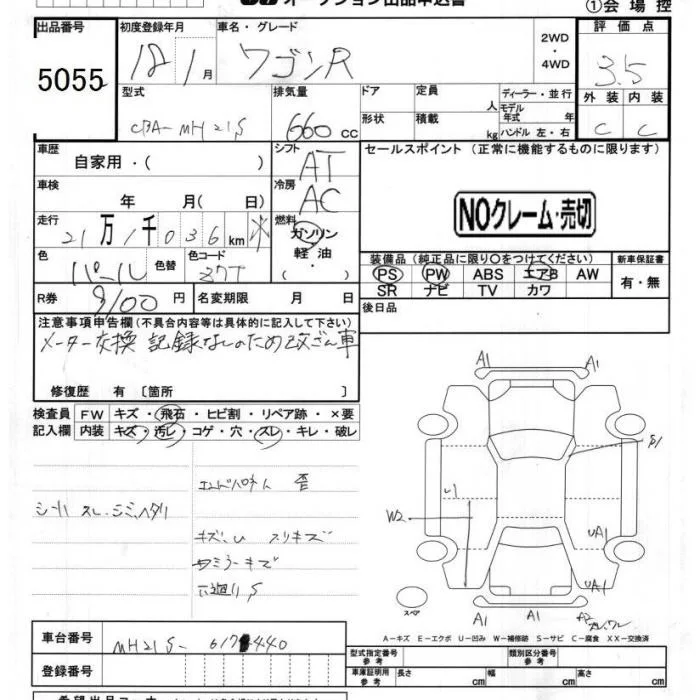 オークション出品申込書
①会場控
出品番号
5055
初度登録年月
18 1月
車名・グレード
ワゴンR
2WD
・
4WD
評価点
3.5
外装 内装
C C
型式
CBA-MH21S
排気量
660 CC
ドア
形状
定員 人
積載 kg
ディーラー・並行
モデル年式 年
ハンドル 左・右
車歴
自家用・( )
シフト
AT
車検
年 月( 日)
冷房
AC
走行
21万1千036km ※
燃料
ガソリン
軽油・
( )
色
パール
色替
色コード
Z7T
R券
9100円
名変期限 月 日
セールスポイント(正常に機能するものに限ります)
NOクレーム・売切
装備品(純正品に限り○をつけてください)
PS PW ABS エアB AW
SR ナビ TV カワ
新車保証書
有・無
後日品
注意事項申告欄(不具合内容等は具体的に記入して下さい)
メーター交換 記録なしのため改ざん車
修復歴 有〔箇所 〕
検査員
記入欄
FW キズ・飛石・ヒビ割・リペア跡・×要
内装 キズ・汚レ・コゲ・穴・スレ・キレ・破レ
シート スレ.シミ.ヘタリ
エンドパネル 歪
キズ.U スリキズ
ミラーキズ
下廻りS
A1 A1
S1
U1
W2
UA1
UA1
スペア
A1 A1 A2
A-キズ E-エクボ U-凹み W-補修跡 S-サビ C-腐食 XX-交換済
車台番号
MH21S-
440
登録番号
型式指定番号
参考
類別区分番号
参考
車庫証明用
参考
長さ cm
幅 cm
高さ cm